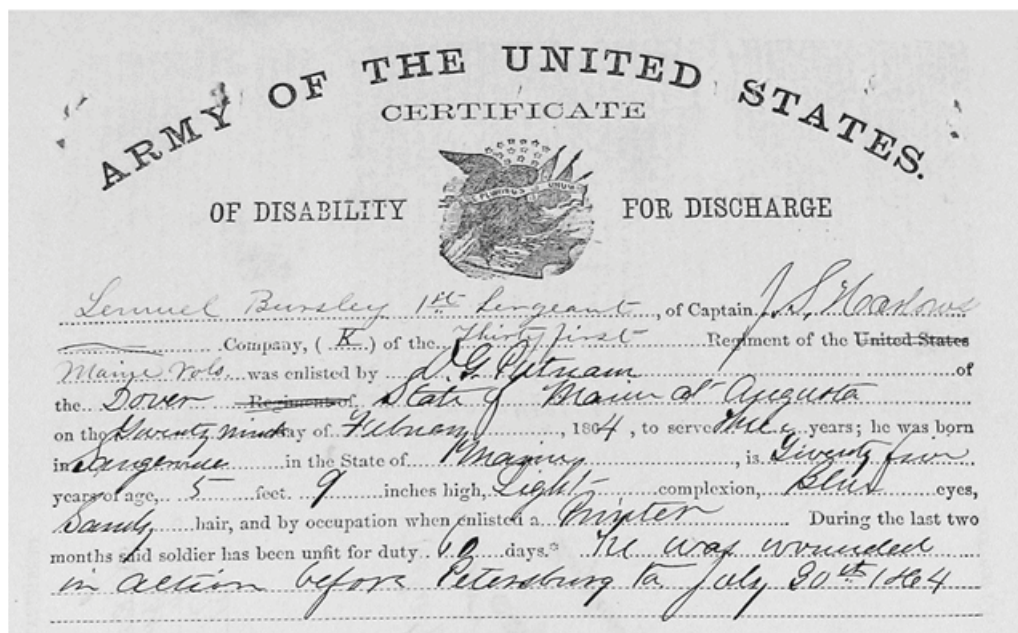 ARMY OF THE UNITED STATES.
CERTIFICATE
E PLURIBUS UNUM
OF DISABILITY FOR DISCHARGE
Lemuel Bursley 1st Sergeant, of Captain J. S. Harlows
Company, (K) of the Thirty first Regiment of the United States
Maine Vols. was enlisted by D. G. Putnam of
the Dover Regiment of State of Maine at Augusta
on the Twenty ninth day of February, 1864, to serve Three years; he was born
in Sangerville in the State of Maine, is Twenty five
years of age, 5 feet 9 inches high, Light complexion, Blue eyes,
Sandy hair, and by occupation when enlisted a During the last two
months said soldier has been unfit for duty days.* He was wounded
in action before Petersburg Va July 30th 1864